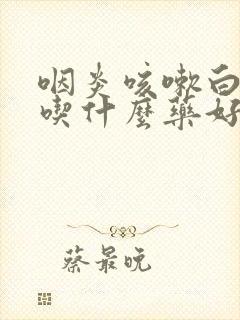 咽炎咳嗽白
喫什麼藥好
蔡最晚